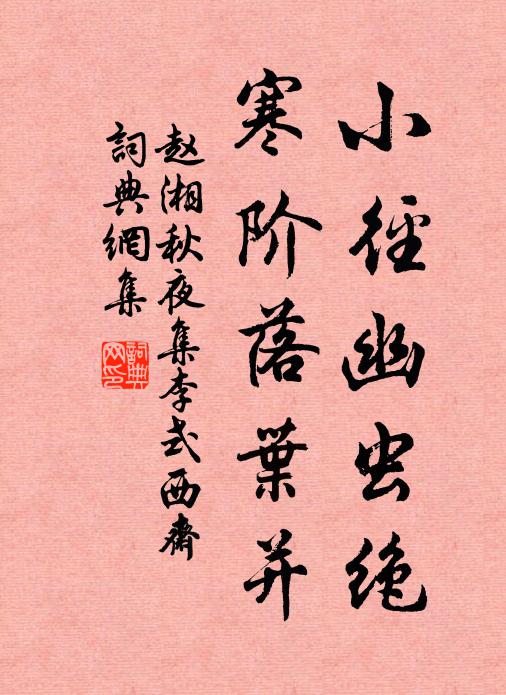 小径幽虫绝
寒阶落葉并
赵湘秋夜集李式西齋
詞典網集
詞典網印